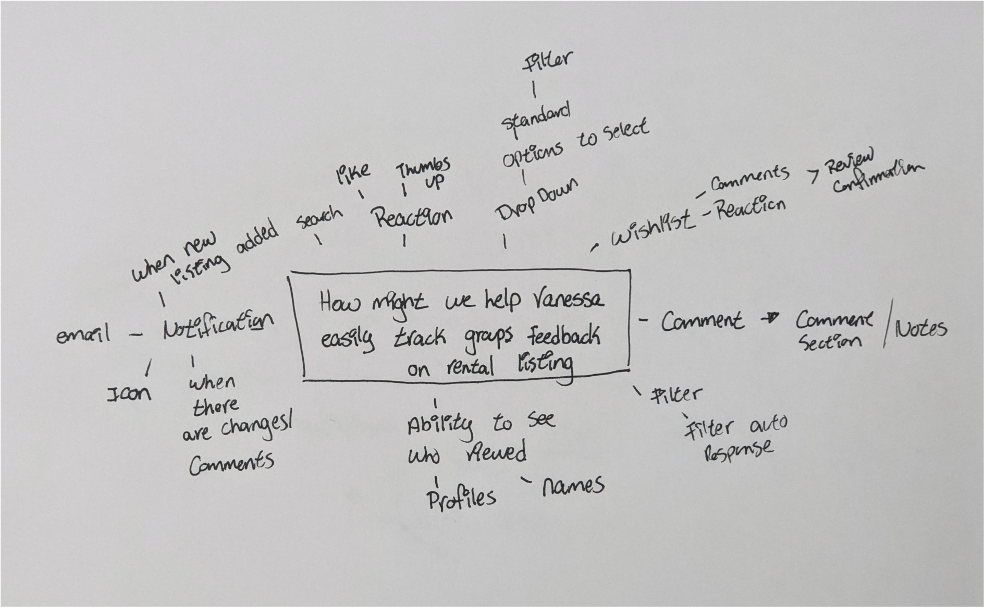 Filter
standard
options to select
Drop Down
like
Thumbs
up
Reaction
search
when new
listing added
email - Notification
Icon
when
there
are changes/
Comments
How might we help Vanessa
easily track groups feedback
on rental listing
wishlist
- Comments
- Reaction
> Review
Confirmation
- Comment → Comment
Section / Notes
Filter
Filter auto
Response
Ability to see
who viewed
Profiles
names